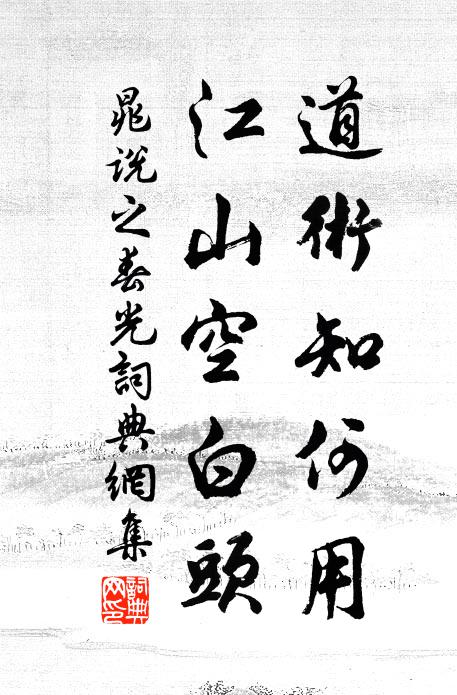 道術知何用
江山空白頭
晁說之春光詞典網集
詞典
网印